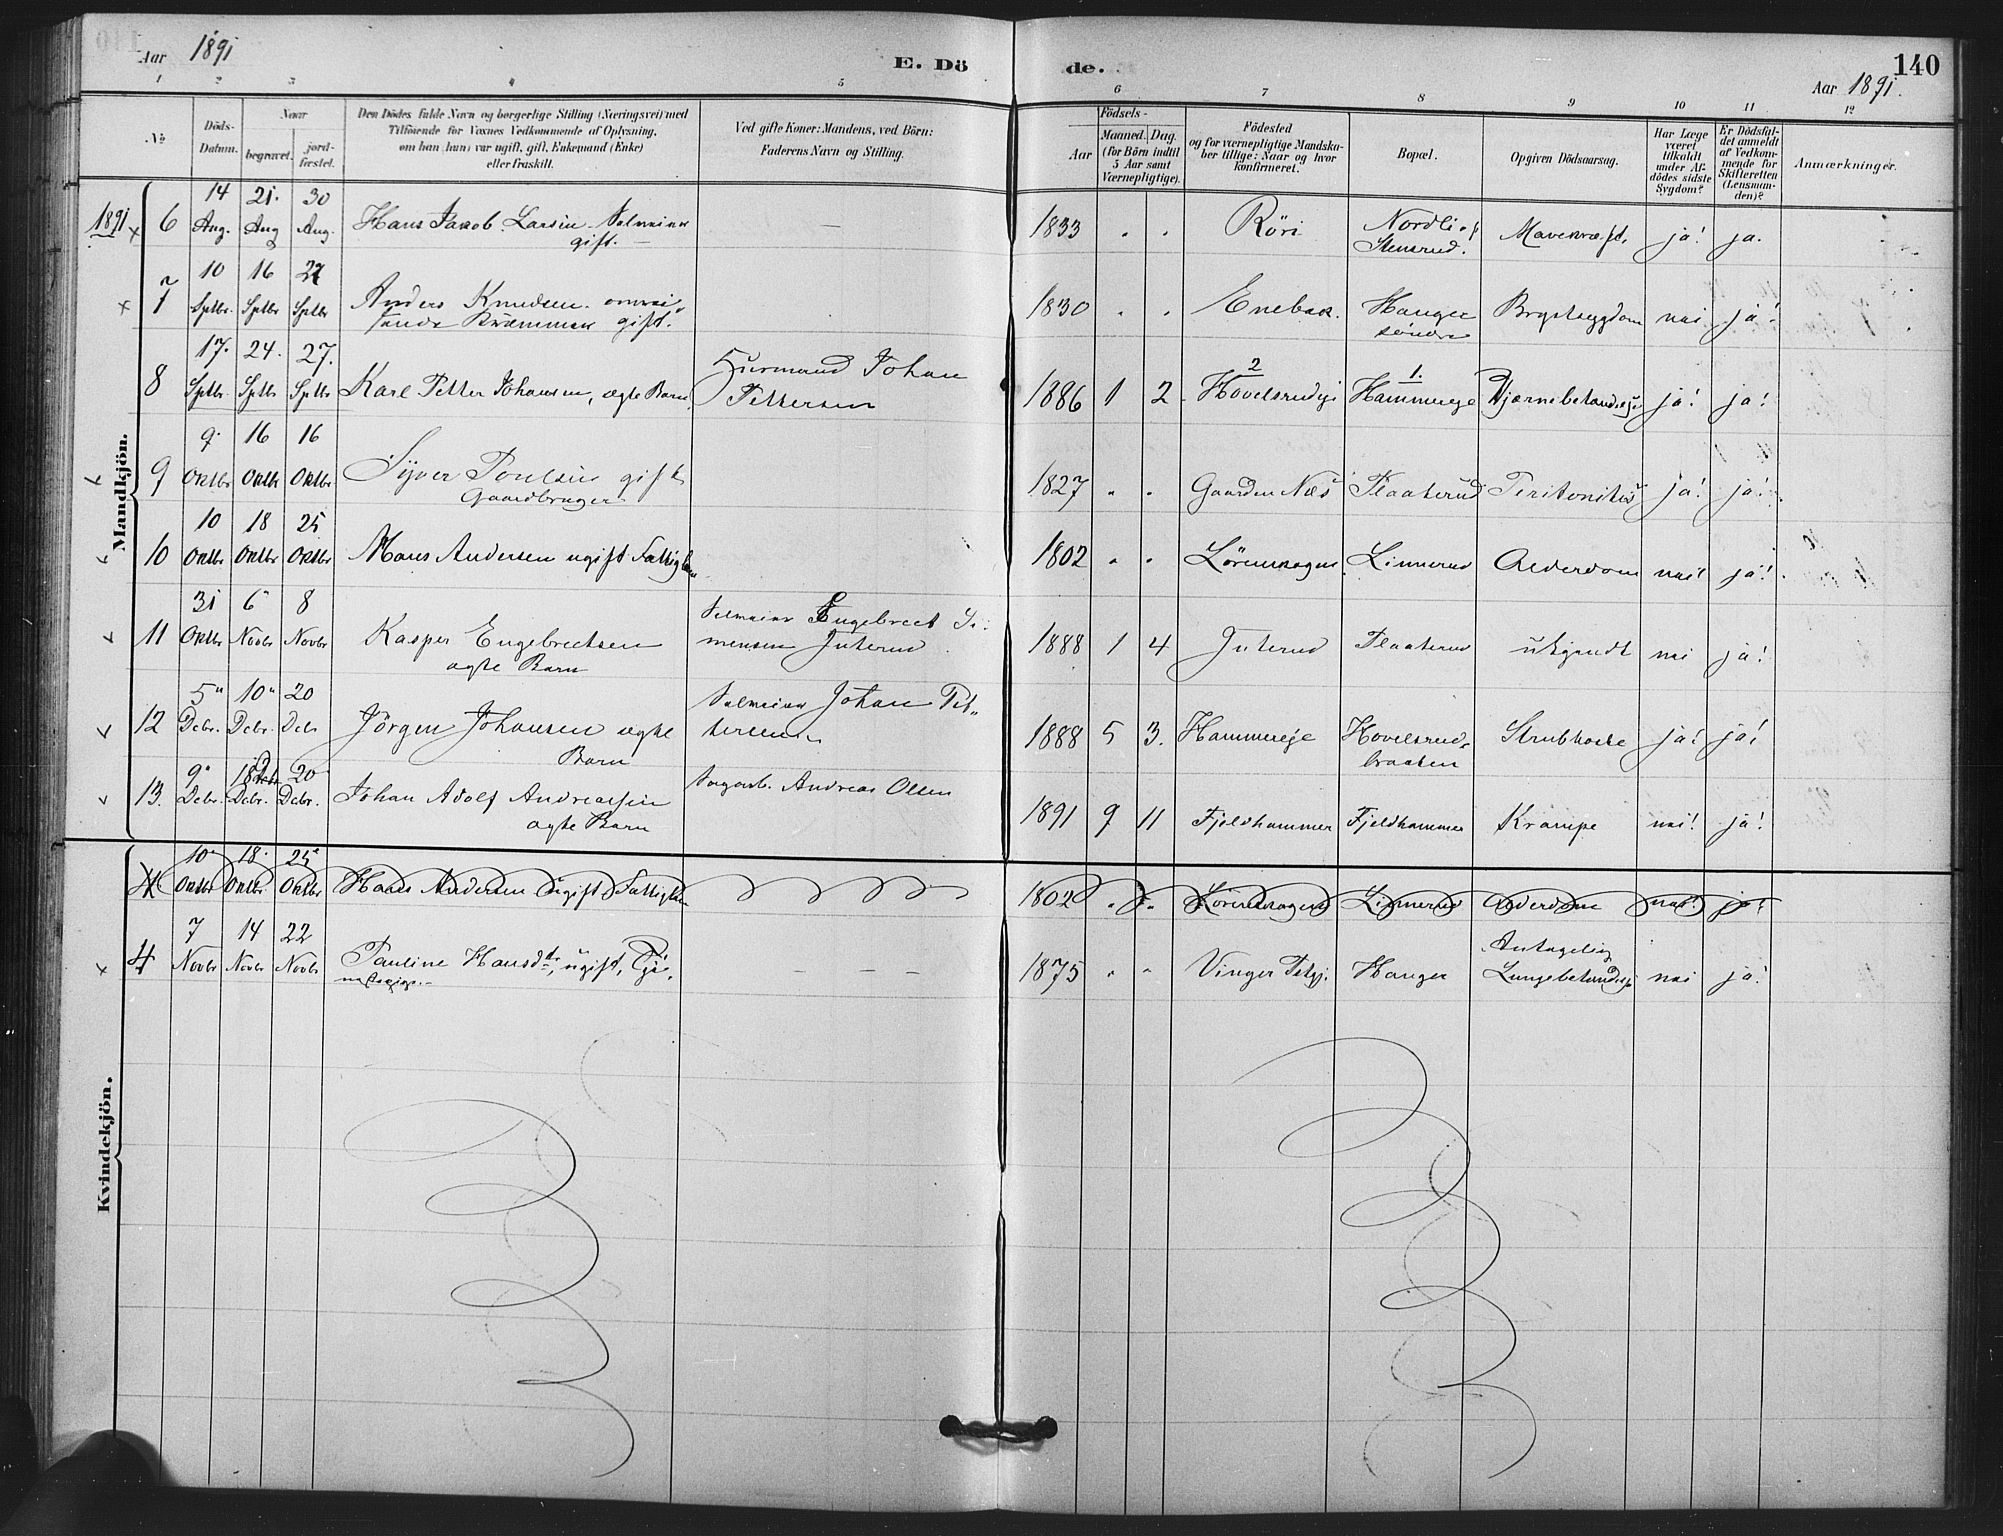 Aar 1891
E. Dö
de.
140
Aar 1891.
1 2 3 4 5 6 7 8 9 10 11 12
No
Döds-Datum.
Naar
begravet.
jord-fæstet.
Den Dödes fulde Navn og borgerlige Stilling (Næringsvei) med
Tilföiende for Voxnes Vedkommende af Oplysning,
om han (hun) var ugift, gift, Enkemand (Enke)
eller fraskilt.
Ved gifte Koner: Mandens, ved Börn:
Faderens Navn og Stilling.
Födsels-
Aar
Maaned. Dag.
(for Börn indtil
5 Aar samt
Værnepligtige).
Födested
og for værnepligtige Mandska-
ber tillige: Naar og hvor
konfirmeret.
Bopæl.
Opgiven Dödsaarsag.
Har Læge
været
tilkaldt
under Af-
dödes sidste
Sygdom?
Er Dödsfal-
det anmeldt
af Vedkom-
mende for
Skifteretten
(Lensman-
den)?
Anmærkninger.
Mandkjön.
1891 6 14 Aug. 21. Aug 30 Aug. Hans Jakob Larsen Selveier gift. — — 1833 " " Röri Nordli Stensrud! Mavekræft. ja! ja.
7 10 Septbr. 16 Septbr 27 Septbr Anders Knudsen omrei-
sende Kræmmer gift. 1830 " " Enebak. Hauger söndre Brystsygdom nei ja!
8 17. Septbr. 24. Septbr 27. Septbr Karl Petter Johansen, ægte Barn. Huusmand Johan
Pettersen 1886 1 2 2 Hovelsrudeje 1. Hammereje Hjærnebetændelse ja! ja!
9 9. Oktbr 16 Oktbr 16 Oktbr Syver Poulsen gift
Gaardbruger 1827 " " Gaarden Næs Flaaterud Peritonitis ja! ja!
10 10 Oktbr 18 Oktbr 25 Oktbr Hans Andersen ugift Fattiglem 1802 " " Lörenskogen Linnerud Alderdom nei! ja!
11 31 Oktbr 6 Novbr 8 Novbr Kasper Engebretsen
ægte Barn Selveier Engebret Si-
mensen Juterud 1888 1 4 Juterud Flaaterud ukjendt nei ja!
12 5 Decbr. 10 Decbr. 20 Decbr Jörgen Johansen ægte
Barn Selveier Johan Pet-
tersen 1888 5 3. Hammereje Hovelsrud-
braaten Strubhoste ja! ja!
13. 9 Decbr. 18 Decbr. 20 Decbr. Johan Adolf Andreassen
ægte Barn Sagarb. Andreas Olsen 1891 9 11 Fjeldhammer Fjeldhammer Krampe nei! ja!
Kvindekjön.
4 10 Oktbr 18. Oktbr. 25 Oktbr Hans Andersen ugift Fattiglem 1802 " " Lörenskogen Linnerud Alderdom nei! ja!
4 7 Novbr 14 Novbr 22 Novbr Pauline Hansdtr, ugift, Tje-
nestepige. — — — 1875 " " Vinger Pstgj. Hauger Antagelig
Lungebetændelse nei ja!